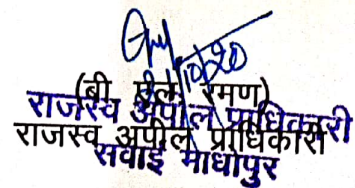 10/20
(बी एल रमण)
राजस्व अपील प्राधिकारी
राजस्व अपील प्राधिकारी
सवाई माधोपुर